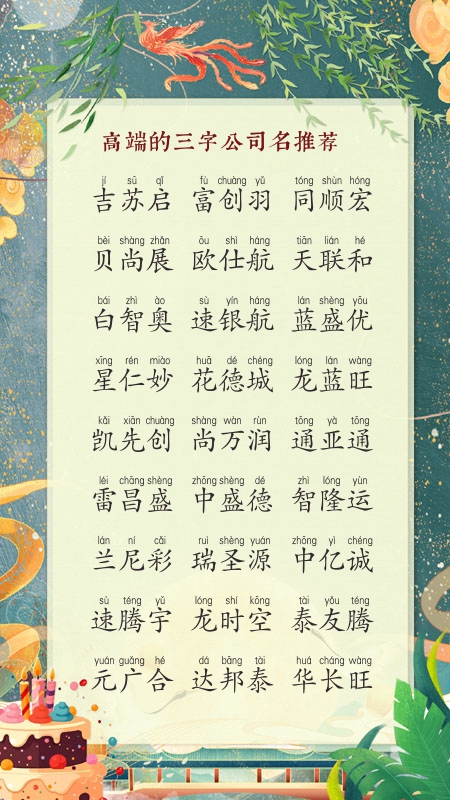 高端的三字公司名推荐
jí sū qǐ fù chuàng yǔ tóng shùn hóng
吉苏启 富创羽 同顺宏
bèi shàng zhǎn ōu shì háng tiān lián hé
贝尚展 欧仕航 天联和
bái zhì ào sù yín háng lán shèng yōu
白智奥 速银航 蓝盛优
xīng rén miào huā dé chéng lóng lán wàng
星仁妙 花德城 龙蓝旺
kǎi xiān chuàng shàng wàn rùn tōng yà tōng
凯先创 尚万润 通亚通
léi chāng shèng zhōng shèng dé zhì lóng yùn
雷昌盛 中盛德 智隆运
lán ní cǎi ruì shèng yuán zhōng yì chéng
兰尼彩 瑞圣源 中亿诚
sù téng yǔ lóng shí kōng tài yǒu téng
速腾宇 龙时空 泰友腾
yuán guǎng hé dá bāng tài huá cháng wàng
元广合 达邦泰 华长旺